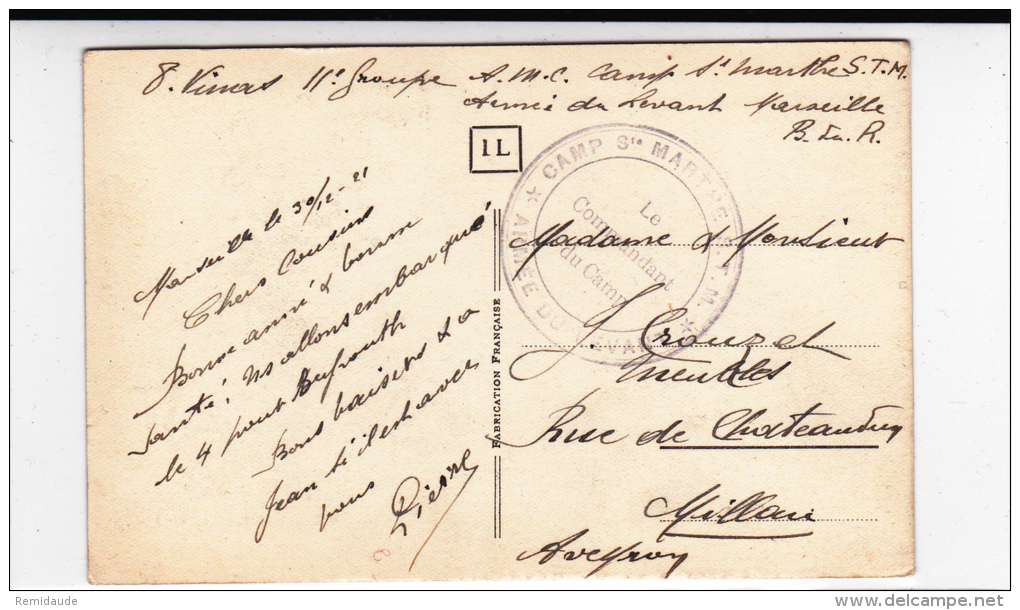 P. Vinas 11e Groupe A.M.C. Camp Ste Marthe S.T.M.
Armée du Levant Marseille
B. du R.
1L
CAMP Ste MARTHE S.T.M.
ARMÉE DU LEVANT
Le
Commandant
du Camp
Marseille le 30/12-21
Chers Cousins
Bonne anné & bonne
santé, ns allons embarqué
le 4 pour Beyrouth
Bons baisers & a
Jean s'il est avec
vous
Pierre
FABRICATION FRANÇAISE
Madame & Monsieur
J. Crouzet
Meubles
Rue de
Millau
Aveyron
Remidaude
http://www.delcampe.net